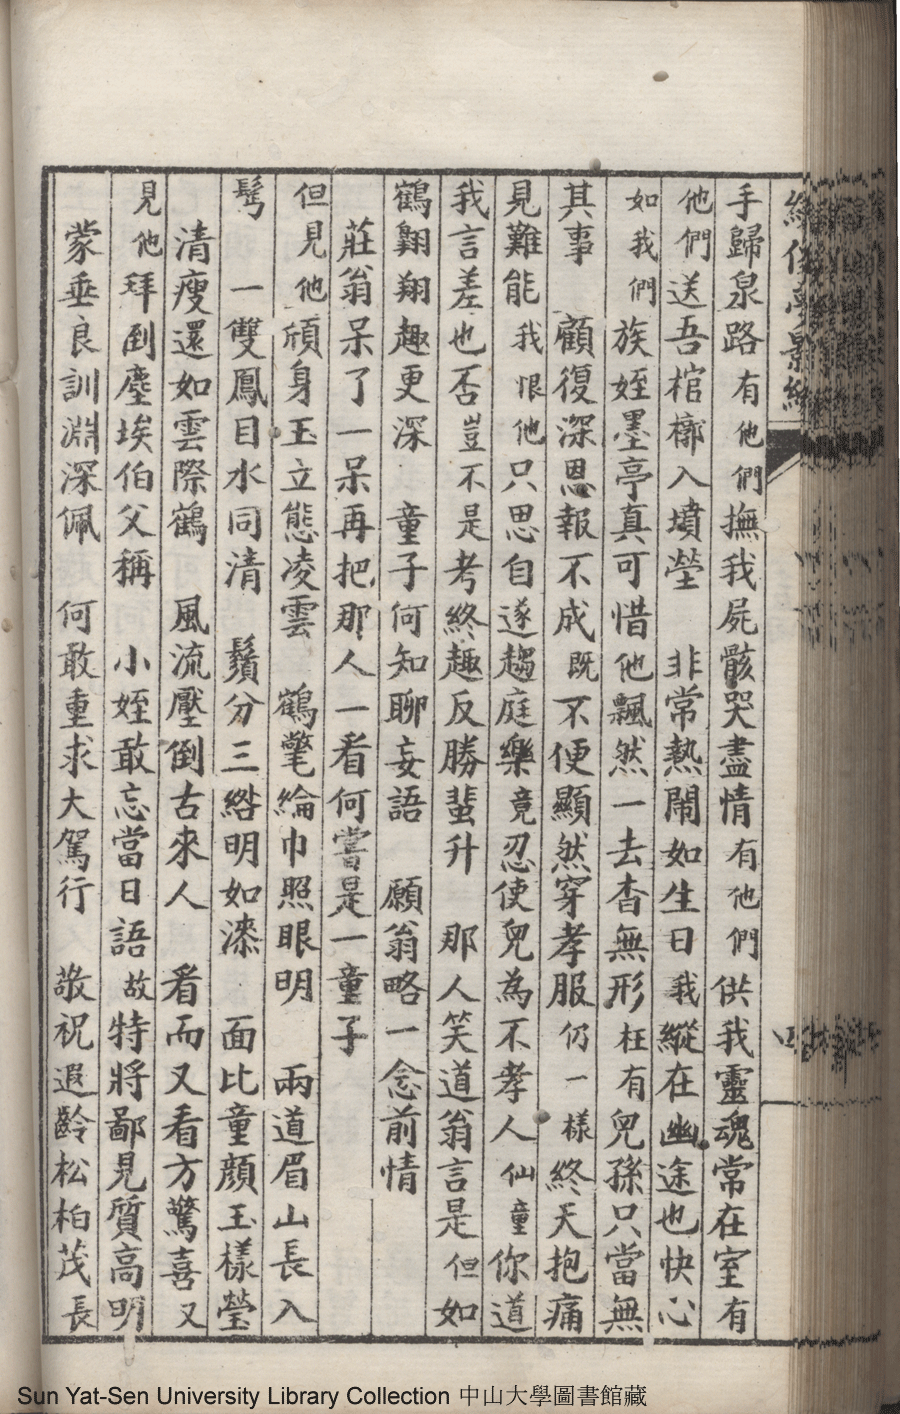 手歸泉路有他們撫我屍骸哭盡情有他們供我靈魂常在室有
他們送吾棺槨入墳塋　非常熱鬧如生日我縱在幽途也快心
如我們族姪墨亭真可惜他飄然一去杳無形枉有兒孫只當無
其事　顧復深恩報不成既不便顯然穿孝服仍一樣終天抱痛
見難能我恨他只思自遂趨庭樂竟忍使兒為不孝人仙童你道
我言差也否豈不是考終趣反勝蜚升　那人笑道翁言是但如
鶴翺翔趣更深　童子何知聊妄語　願翁略一念前情
莊翁呆了一呆再把那人一看何嘗是一童子
但見他頎身玉立態凌雲　鶴氅綸巾照眼明　兩道眉山長入
鬢　一雙鳳目水同清　鬚分三綹明如漆　面比童顏玉樣瑩
清瘦還如雲際鶴　風流壓倒古來人　看而又看方驚喜又
見他拜倒塵埃伯父稱　小姪敢忘當日語故特將鄙見質高明
蒙垂良訓淵深佩　何敢重求大駕行　敬祝遐齡松柏茂長
Sun Yat-Sen University Library Collection 中山大學圖書館藏